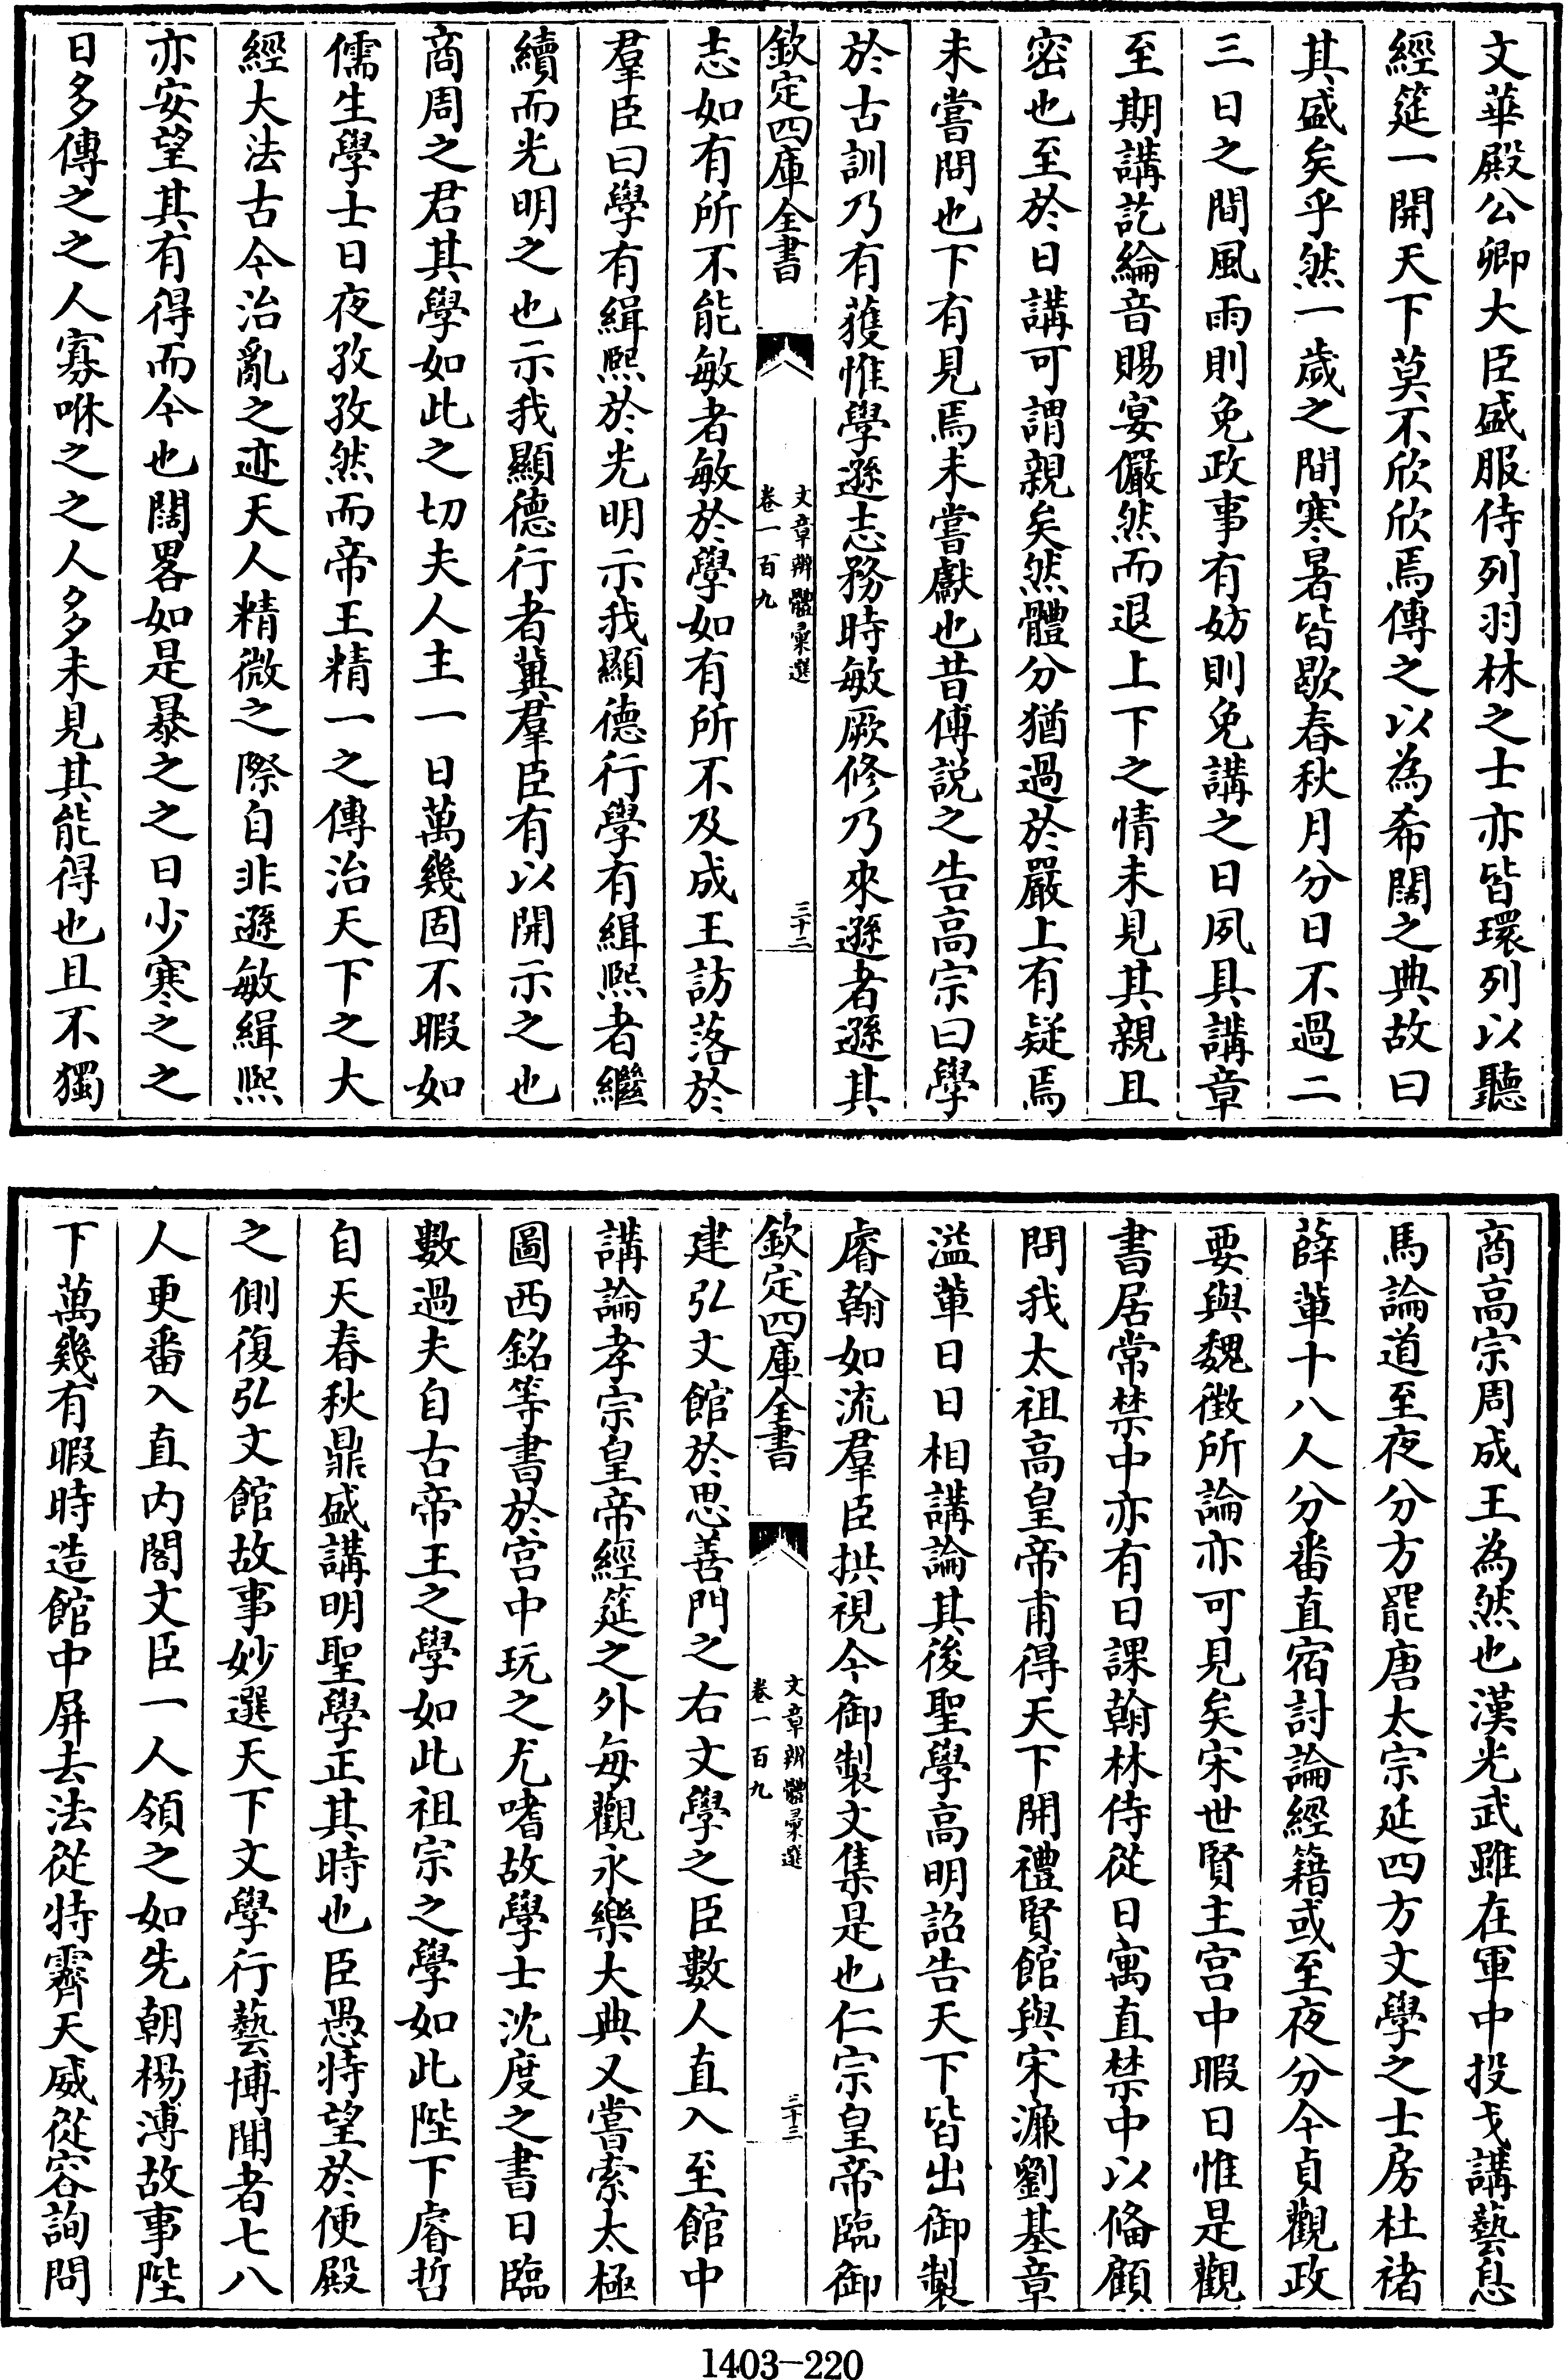 文華殿公卿大臣盛服侍列羽林之士亦皆環列以聽
經筵一開天下莫不欣欣焉傳之以為希闊之典故曰
其盛矣乎然一歲之間寒暑皆歇春秋月分日不過二
三日之間風雨則免政事有妨則免講之日夙具講章
至期講訖綸音賜宴儼然而退上下之情未見其親且
密也至於日講可謂親矣然體分猶過於嚴上有疑焉
未嘗問也下有見焉未嘗獻也昔傅説之告高宗曰學
於古訓乃有獲惟學遜志務時敏厥修乃來遜者遜其
欽定四庫全書
文章辨體彙選
卷一百九
三十二
志如有所不能敏者敏於學如有所不及成王訪落於
羣臣曰學有緝熙於光明示我顯德行學有緝熙者繼
續而光明之也示我顯德行者冀羣臣有以開示之也
商周之君其學如此之切夫人主一日萬幾固不暇如
儒生學士日夜孜孜然而帝王精一之傳治天下之大
經大法古今治亂之迹天人精微之際自非遜敏緝熙
亦安望其有得而今也闊畧如是暴之之日少寒之之
日多傳之之人寡咻之之人多未見其能得也且不獨
商高宗周成王為然也漢光武雖在軍中投戈講藝息
馬論道至夜分方罷唐太宗延四方文學之士房杜褚
薛輩十八人分番直宿討論經籍或至夜分今貞觀政
要與魏徵所論亦可見矣宋世賢主宮中暇日惟是觀
書居常禁中亦有日課翰林侍從日寓直禁中以偹顧
問我太祖高皇帝甫得天下開禮賢館與宋濂劉基章
溢輩日日相講論其後聖學高明詔告天下皆出御製
睿翰如流羣臣拱視今御製文集是也仁宗皇帝臨御
欽定四庫全書
文章辨體彙選
卷一百九
三十三
建弘文館於思善門之右文學之臣數人直入至館中
講論孝宗皇帝經筵之外每觀永樂大典又嘗索太極
圖西銘等書於宮中玩之尤嗜故學士沈度之書日臨
數過夫自古帝王之學如此祖宗之學如此陛下睿哲
自天春秋鼎盛講明聖學正其時也臣愚特望於便殿
之側復弘文館故事妙選天下文學行藝博聞者七八
人更番入直内閣文臣一人領之如先朝楊溥故事陛
下萬幾有暇時造館中屏去法從特霽天威從容詢問
1403-220